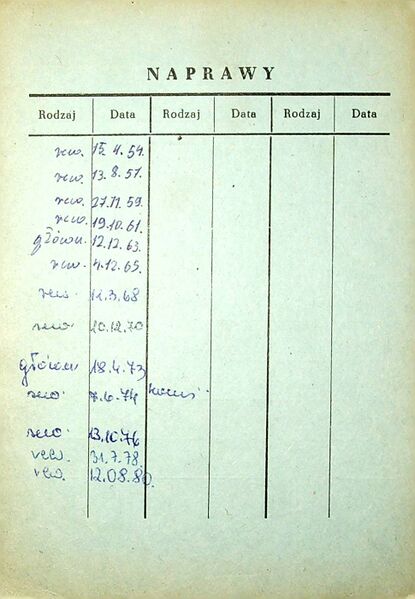 NAPRAWY
Rodzaj Data Rodzaj Data Rodzaj Data
rew. 15.4.54.
rew. 13.8.57.
rew. 27.11.59.
rew. 19.10.61.
główn. 12.12.63.
rew. 4.12.65.
rew. 12.3.68
rew. 20.12.70
główn 18.4.73
rew. 7.6.74
rew. 13.10.76
rew. 31.7.78.
rew. 12.08.80.